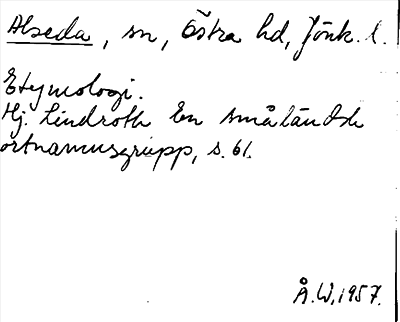 Alseda, sn, Östra hd, Jönk. l.
Etymologi.
Hj. Lindroth En småländsk
ortnamnsgrupp, s. 61.
Å.W. 1957.